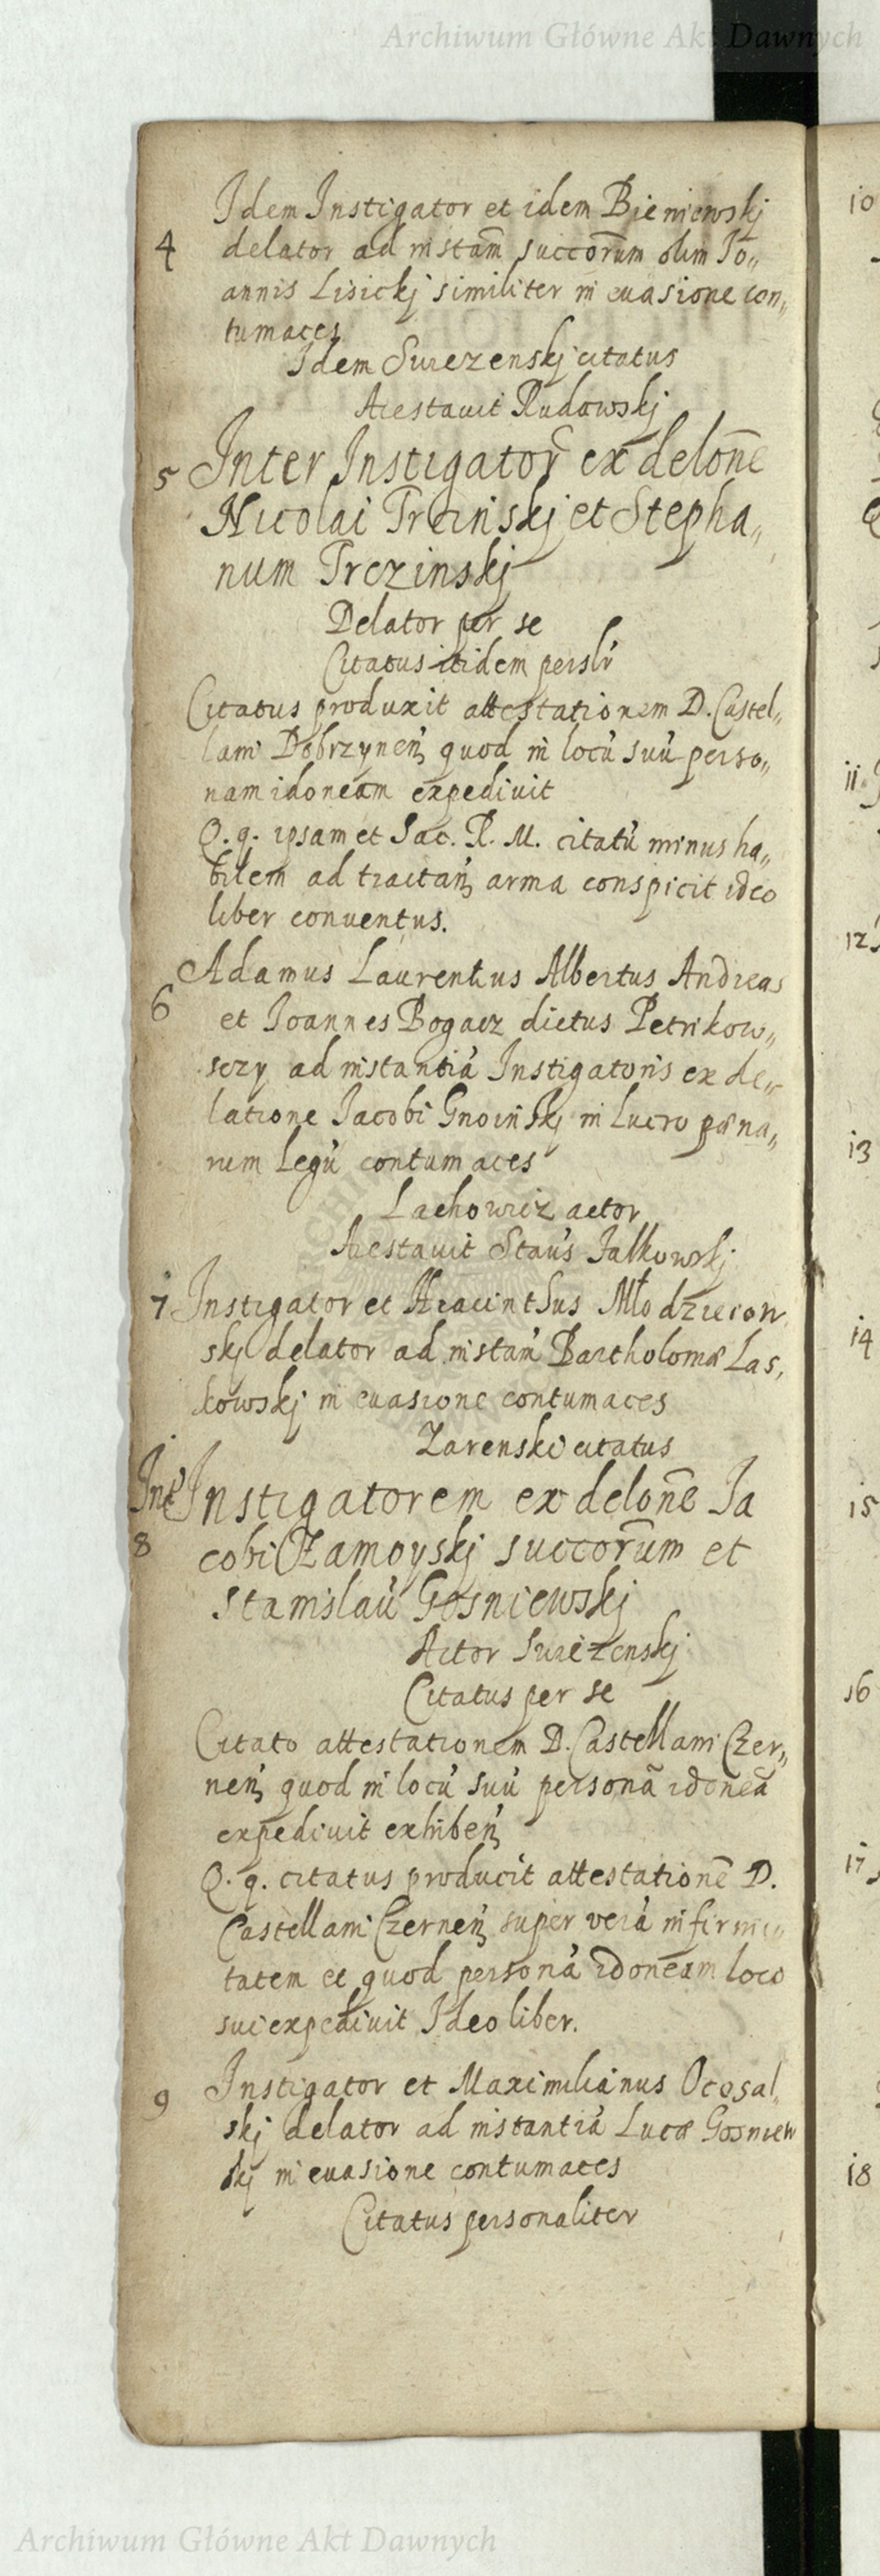 Archiwum Główne Akt Dawnych
Idem Instigator et idem Bieniewskj
4 delator ad instam̄ succorūm olim Jo„
annis Lisickj similiter in evasione con„
tumaces
Idem Surezenskj citatus
Arestavit Rudowskj
5 Inter Instigator̄ ex delon̄e
Nicolai Trcinskj et Stepha„
num Trczinskj
Delator per se
Citatus itidem perslr̄
Citatus produxit attestationem D. Castel„
lani Dobrzynen̄, quod in locū suū perso„
nam idoneam expedivit
Q. q. ipsamet Sac. R. M. citatū minus ha„
bilem ad tractan̄, arma conspicit ideo
liber conventus.
6 Adamus Laurentius Albertus Andreas
et Joannes Bogacz dictus Petrikow„
sczy ad instantiā Instigatoris ex de„
latione Jacobi Gnoińskj in lucro pœna„
rum Legū contumaces
Lachowicz actor
Arestavit Staūs Jalkowskj
7 Instigator et Hiacinthus Młodzieiow
skj delator ad instan̄ Bartholomæ Las,
kowskj in evasione contumaces
Zarenski citatus
Int̄ Instigatorem ex delon̄e Ja
8 cobi Zamoyskj succorūm et
Stanislaū Gosniewskj
Actor Surezenskj
Citatus per se
Citato attestationem D. Castellani Czer„
nen̄, quod in locū suū personā idoneā
expedivit exhiben̄,
Q. q. citatus producit attestationē D.
Castellani Czernen̄, super verā infirmi„
tatem et quod personā idoneam loco
sui expedivit Ideo liber.
9 Instigator et Maximilianus Ocosal„
skj delator ad instantiā Lucæ Gosniew
skj in evasione contumaces
Citatus personaliter
10
11
12
13
14
15
16
17
18
Archiwum Główne Akt Dawnych